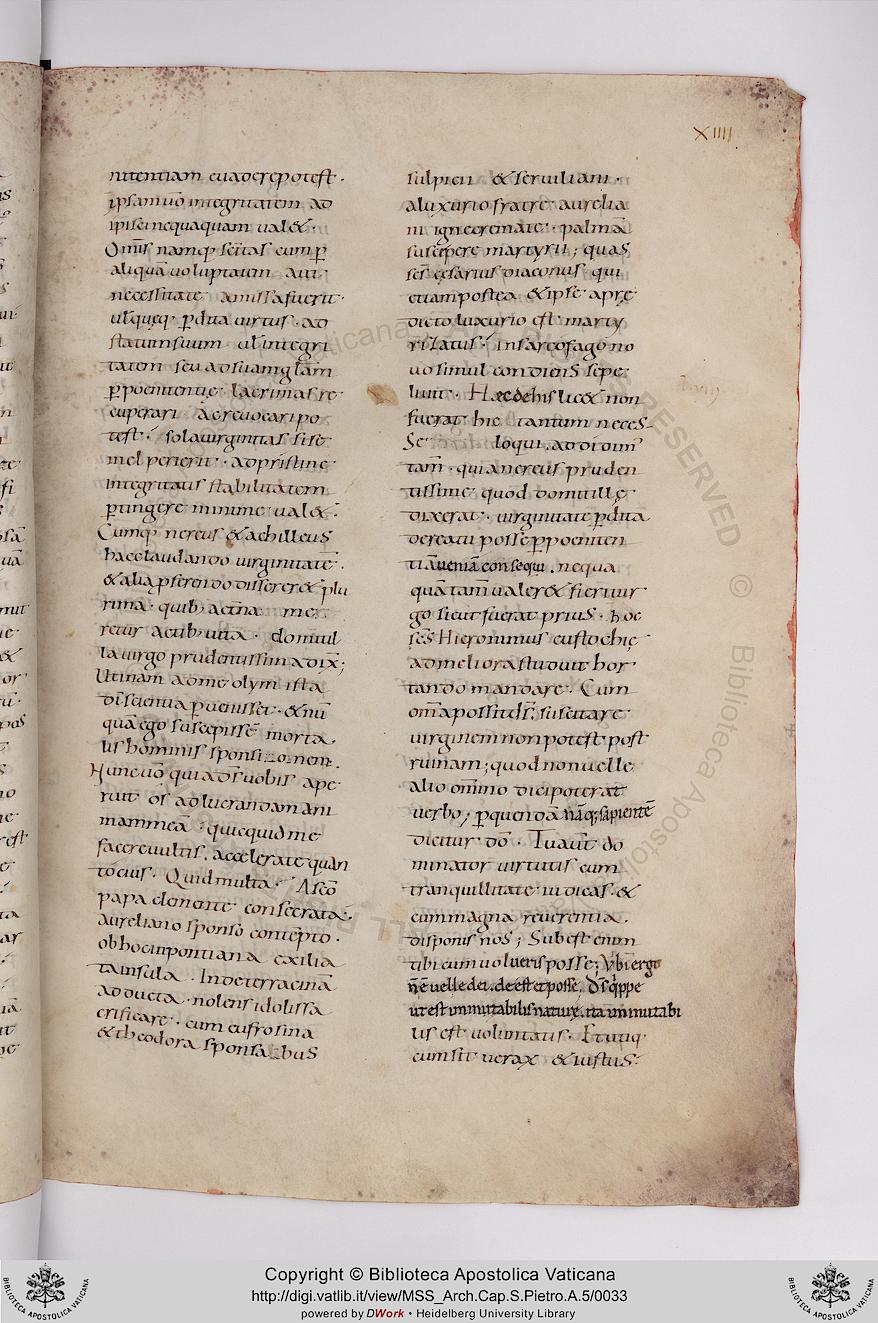 XIIII
nitentiam euadere potest·
ipsam uō integritatem ad
ipisci nequaquam ual&·
Om̄is namq; sc̄itas cum p̄
aliquā uoluptatem aut·
necessitate amissa fuerit·
ubi p̄dita uirtus· ad
statum suum ul integri
tatem seu ad suam gl̄am
p̄ poenitentię lacrimas re
cuperari ac reuocari po
test· sola uirginitas si se
mel perierit· ad pristinę
integritatis stabilitatem
p̄tingere minime ual&·
Cumq; nereus & achilleus
hęc laudando uirginitatē·
& alia p̄ferendo differer& plu
rima· quib;
retur actib; uita· domitil
la uirgo prudentissim̄ ad ix̄;
Utinam ad me olym ista
di sc̄ientia p̄uenisset· & nū
quā ego suscepissē morta·
lis hominis sponsi onem·
Hunc uō qui ad s̄ uobis ape
ruit os ad lucrandam ani
mam meā· quicquid me
facere uultis, accelerate quan
tocius· Quid multa· A sc̄o
papa clemente consecrata·
aureliano sponso contēpto·
ob hoc in pontiana exilia
ta insula· Inde terracinā
adducta· nolens idolis sa
crificare· cum eufrosina
& theodora sponsa bus
sulpicii & seruiliani·
a luxurio fratre aurelia
ni igne cremate· palmā
suscepere martyrii; quas
sc̄s cesarius diaconus qui
etiam postea & ipse a prę
dicto luxurio est marty
rizatus· in sarcofago no
uo simul condiens sepe·
liuit· Hęc de his lic& non
fuerat hic tantum neces-
se loqui, addidim'
tam̄· qui a nereus pruden
tissime quod domitille
dixerat· uirginitate p̄dita
de reatu posse p̄ poeniten
tiā ueniā consequi· nequa
quā tam̄ ualer& fieri uir
go sicut fuerat prius· hoc
sc̄s Hieronimus eustochię
ad meliora studuit hor
tando mandare· Cum
om̄a possit ds̄; suscitare
uirginem non potest post
ruinam; quod non uelle
alio om̄ino dici poterat
uerbo; p̄ quendā nāq; sapientē
dicitur dō· Tu aut̄ do
minator uirtutis cum
tranquillitate iudicas· &
cum magna reuerentia·
disponis nos; Subest enim
tibi cum uolueris posse; Vb̄i ergo
nē uelle dei, deēst et posse, Ds̄ q̄ppe
ut est inmutabilis naturę, ita inmutabi
lis est uoluntatis· Et utiq·
cum sit uerax & iustus·
Copyright © Biblioteca Apostolica Vaticana
http://digi.vatlib.it/view/MSS_Arch.Cap.S.Pietro.A.5/0033
powered by DWork • Heidelberg University Library